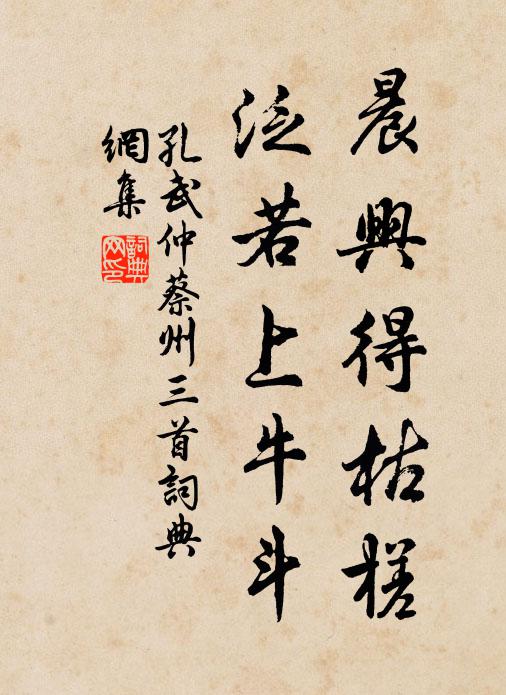 晨興得枯槎
泛若上牛斗
孔武仲蔡州三首詞典
網集
詞典
网印